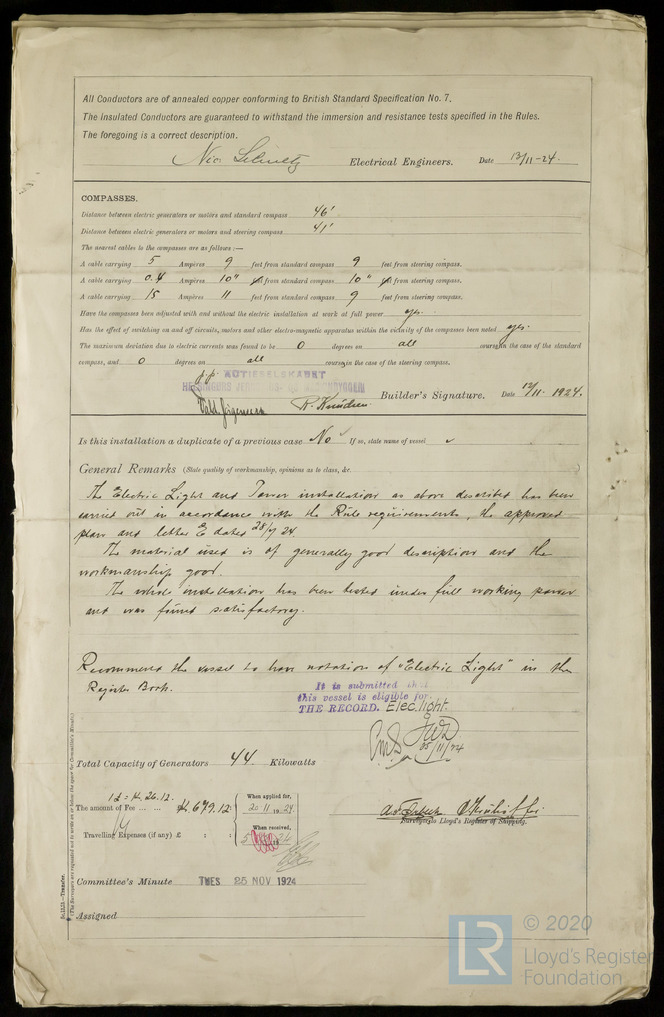 All Conductors are of annealed copper conforming to British Standard Specification No. 7.
The Insulated Conductors are guaranteed to withstand the immersion and resistance tests specified in the Rules.
The foregoing is a correct description.
Electrical Engineers. Date 12/11-24.
COMPASSES.
Distance between electric generators or motors and standard compass 46'
Distance between electric generators or motors and steering compass 41'
The nearest cables to the compasses are as follows:—
A cable carrying 5 Ampères 9 feet from standard compass 9 feet from steering compass.
A cable carrying 0.4 Ampères 10" feet from standard compass 10" feet from steering compass.
A cable carrying 15 Ampères 11 feet from standard compass 9 feet from steering compass.
Have the compasses been adjusted with and without the electric installation at work at full power yes.
Has the effect of switching on and off circuits, motors and other electro-magnetic apparatus within the vicinity of the compasses been noted yes.
The maximum deviation due to electric currents was found to be 0 degrees on all course in the case of the standard
compass, and 0 degrees on all course in the case of the steering compass.
p.p. AKTIESELSKABET
R. Knudsen Builder's Signature. Date 12/11 1924.
Is this installation a duplicate of a previous case No If so, state name of vessel
General Remarks (State quality of workmanship, opinions as to class, &c.
The Electric Light and Power installation as above described has been
carried out in accordance with the Rule requirements, the approved
plan and letter E dated 28/7 24.
The material used is of generally good description and the
workmanship good.
The whole installation has been tested under full working power
and was found satisfactory.
Recommend the vessel to have notation of "Electric Light" in the
Register Book.
It is submitted that
this vessel is eligible for
THE RECORD. Elec. light.
Total Capacity of Generators 44 Kilowatts
The amount of Fee Kr 679.12:
When applied for,
20.11.1924
Travelling Expenses (if any) £ : :
When received,
Surveyor to Lloyd's Register of Shipping.
Committee's Minute TUES 25 NOV 1924
Assigned
LR © 2020
Lloyd's Register
Foundation